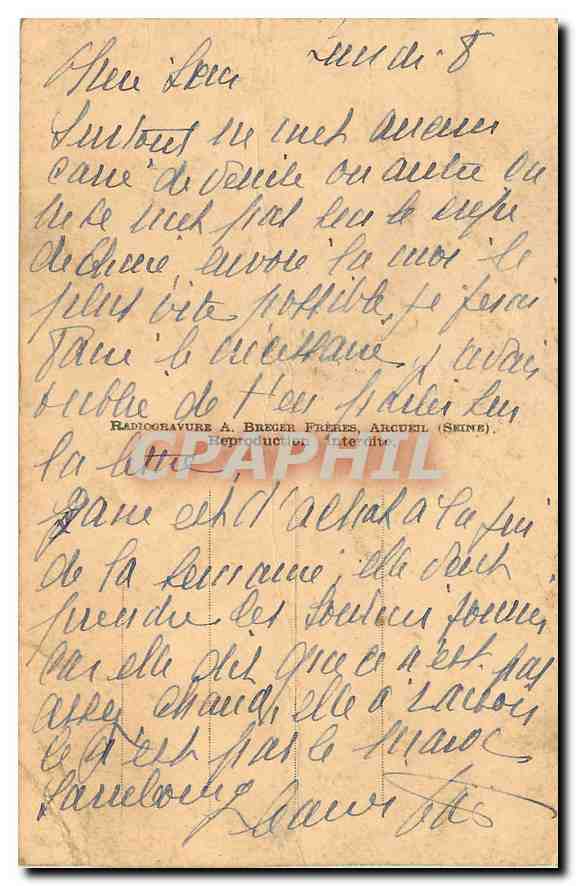 Lundi 8
Surtout ne met aucun
carré de venile ou autre ou
ne met pas sur le
envoie la moi le
plus vite possible, je ferai
faire le nécessaire, j'avais
oublié de t'en parler sur
RADIOGRAVURE A. BREGER FRÈRES, ARCUEIL (SEINE).
Reproduction interdite.
la lettre
CPAPHIL
est d'achat à la fin
de la semaine, elle veut
prendre les
car elle dit que ce n'est pas
assez chaud, elle a raison
ce n'est pas le Maroc